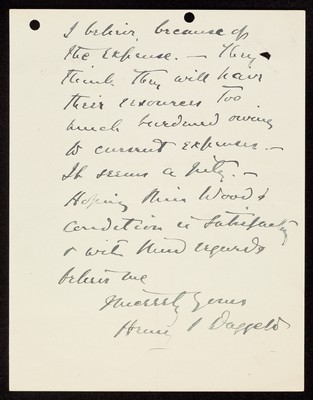 I believe, because of
the expense. — They
think they will have
their resources too
much burdened owing
to current expenses —
It seems a pity. —
Hoping Miss Wood's
condition is satisfactory
& with kind regards
believe me
Sincerely yours
Henry Daggett